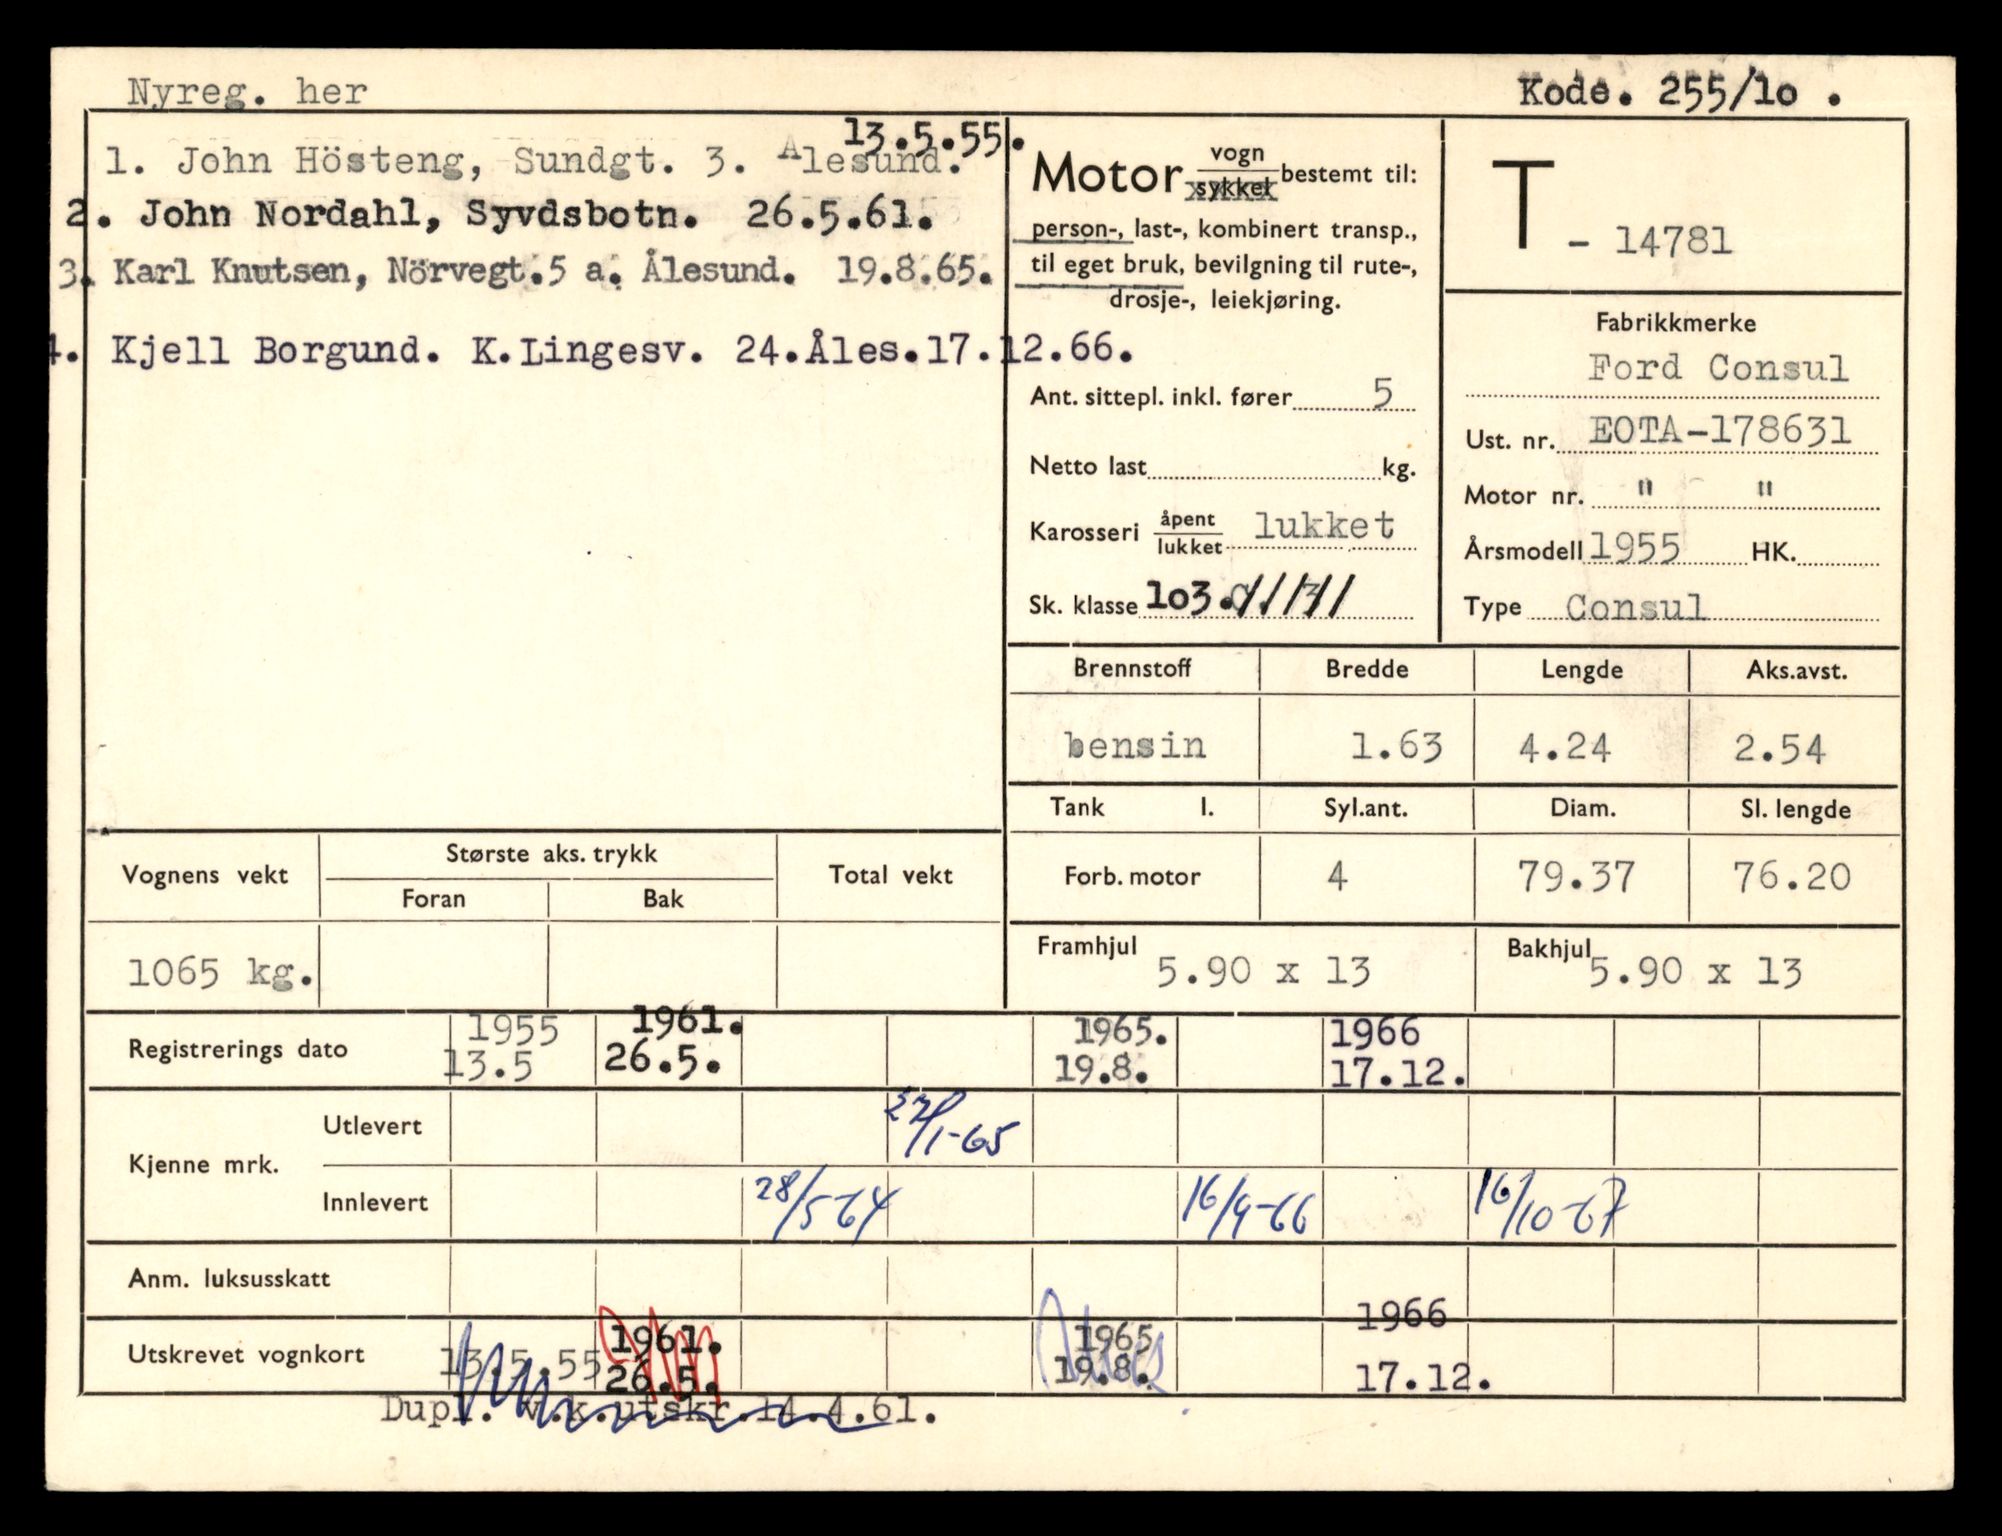 Nyreg. her
Kode. 255/1o .
13.5.55.
1. John Hösteng, Sundgt. 3. Alesund.
2. John Nordahl, Syvdsbotn. 26.5.61.
3. Karl Knutsen, Nörvegt.5 a. Ålesund. 19.8.65.
4. Kjell Borgund. K.Lingesv. 24.Åles.17.12.66.
Motor vogn sykkel bestemt til:
person-, last-, kombinert transp.,
til eget bruk, bevilgning til rute-,
drosje-, leiekjøring.
Ant. sittepl. inkl. fører 5
Netto last kg.
Karosseri åpent lukket lukket
Sk. klasse 1o3.
T - 14781
Fabrikkmerke
Ford Consul
Ust. nr. EOTA-178631
Motor nr. " "
Årsmodell 1955 HK.
Type Consul
Brennstoff Bredde Lengde Aks.avst.
bensin 1.63 4.24 2.54
Tank l. Syl.ant. Diam. Sl. lengde
Forb. motor 4 79.37 76.20
Framhjul 5.90 x 13 Bakhjul 5.90 x 13
Vognens vekt Største aks. trykk Total vekt
Foran Bak
1065 kg.
1955 1961. 1965. 1966
Registrerings dato 13.5 26.5. 19.8. 17.12.
Kjenne mrk.
Utlevert 27/1-65
Innlevert 28/5-64 16/9-66 16/10-67
Anm. luksusskatt
1961. 1965 1966
Utskrevet vognkort 13.5.55 26.5. 19.8. 17.12.
Dupl. v.k.utskr.14.4.61.